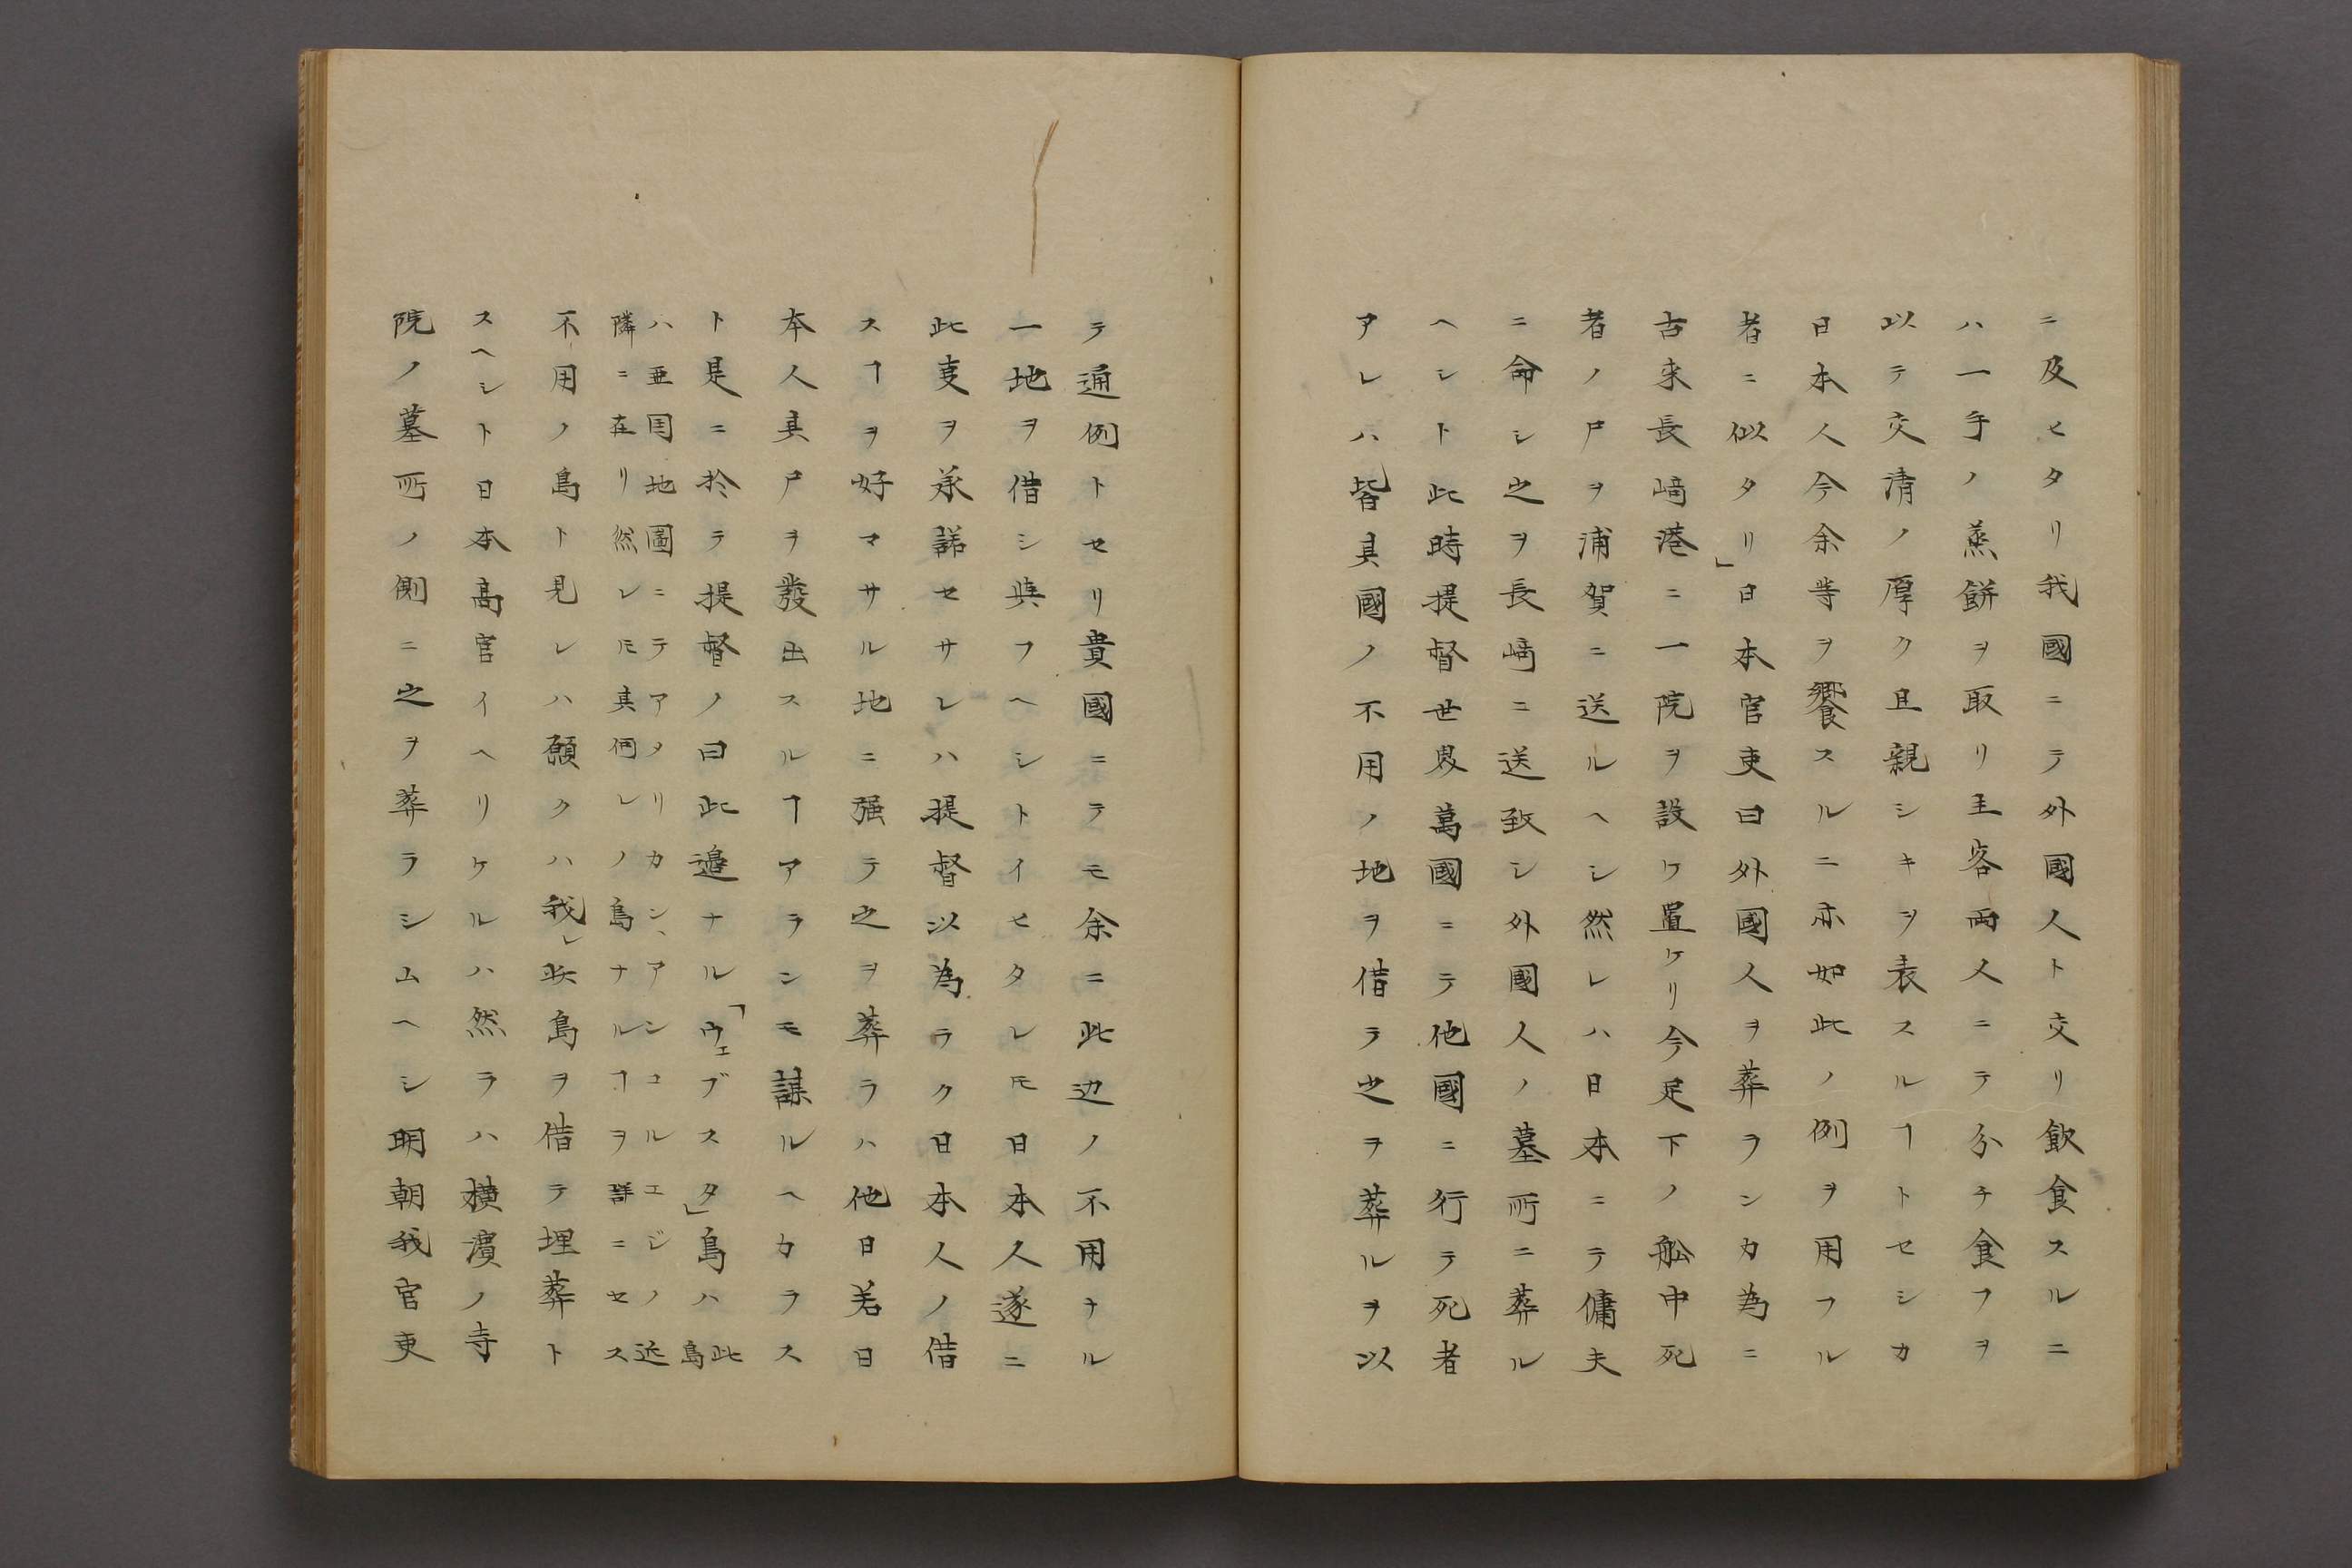 ニ及ヒタリ我國ニテ外國人ト交リ飲食スルニ
ハ一手ノ蒸餅ヲ取リ主客両人ニテ分チ食フヲ
以テ交清ノ厚ク且親シキヲ表スルヿトセシカ
日本人今余等ヲ饗スルニ亦如此ノ例ヲ用フル
者ニ似タリ」日本官吏曰外國人ヲ葬ランカ為ニ
古来長﨑港ニ一院ヲ設ケ置ケリ今足下ノ舩中死
者ノ尸ヲ浦賀ニ送ルヘシ然レハ日本ニテ傭夫
ニ命シ之ヲ長﨑ニ送致シ外國人ノ墓所ニ葬ル
ヘシト此時提督世界萬國ニテ他國ニ行テ死者
アレハ皆具國ノ不用ノ地ヲ借テ之ヲ葬ルヲ以
テ通例トセリ貴國ニテモ余ニ此辺ノ不用ナル
一地ヲ借シ與フヘシトイヒタレ𪜈日本人遂ニ
此叓ヲ承諾セサレハ提督以為ラク日本人ノ借
スヿヲ好マサル地ニ强テ之ヲ葬ラハ他日若日
本人其尸ヲ發出スルヿアランモ謀ルヘカラス
ト是ニ於テ提督ノ曰此邉ナル「ウェブスタ」島ハ此島
ハ亜国地圖ニテアタリカン、アンコルエジノ近
隣ニ在リ然レ𪜈其何レノ島ナルヿヲ詳ニセス
不用ノ島ト見レハ願クハ我レ此島ヲ借テ埋葬ト
スヘシト日本高官イヘリケルハ然ラハ横濵ノ寺
院ノ墓所ノ側ニ之ヲ葬ラシムヘシ明朝我官吏